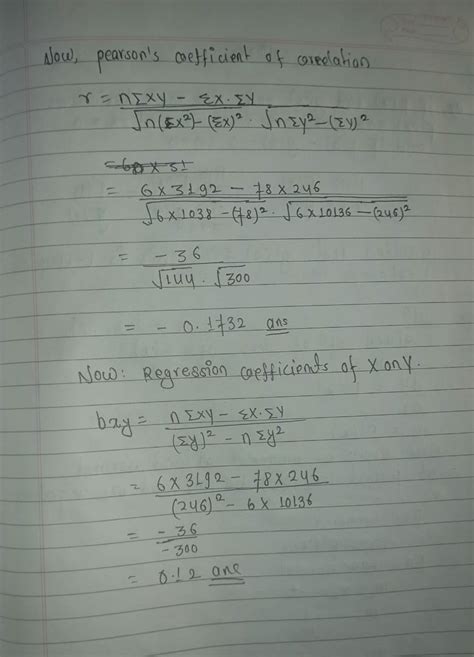 Now, pearson's coefficient of corelation
r = nΣxy - Σx.Σy
√n(Σx²)-(Σx)² . √nΣy²-(Σy)²
= 6 × 3192 - 78 × 246
√6×1038-(78)² . √6×10136-(246)²
= -36
√144 . √300
= - 0.1732 ans
Now: Regression coefficients of X on Y.
bxy = nΣxy - Σx.Σy
(Σy)² - nΣy²
= 6 × 3192 - 78 × 246
(246)² - 6 × 10136
= -36
-300
= 0.12 ans